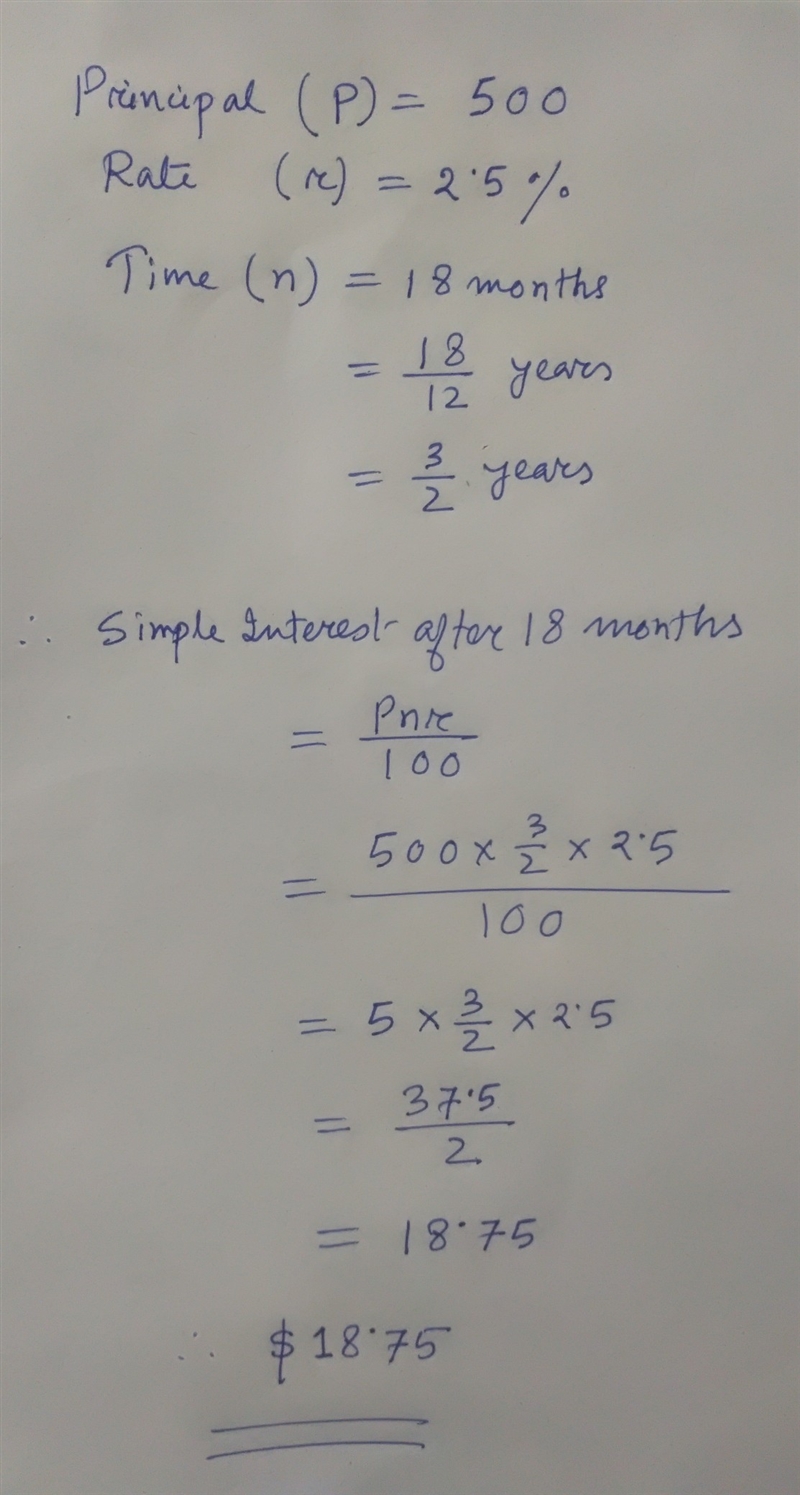 Principal (P) = 500
Rate (r) = 2.5%
Time (n) = 18 months
= 18/12 years
= 3/2 years
∴ Simple Interest after 18 months
= Pnr/100
= 500 × 3/2 × 2.5 / 100
= 5 × 3/2 × 2.5
= 37.5/2
= 18.75
∴ $18.75